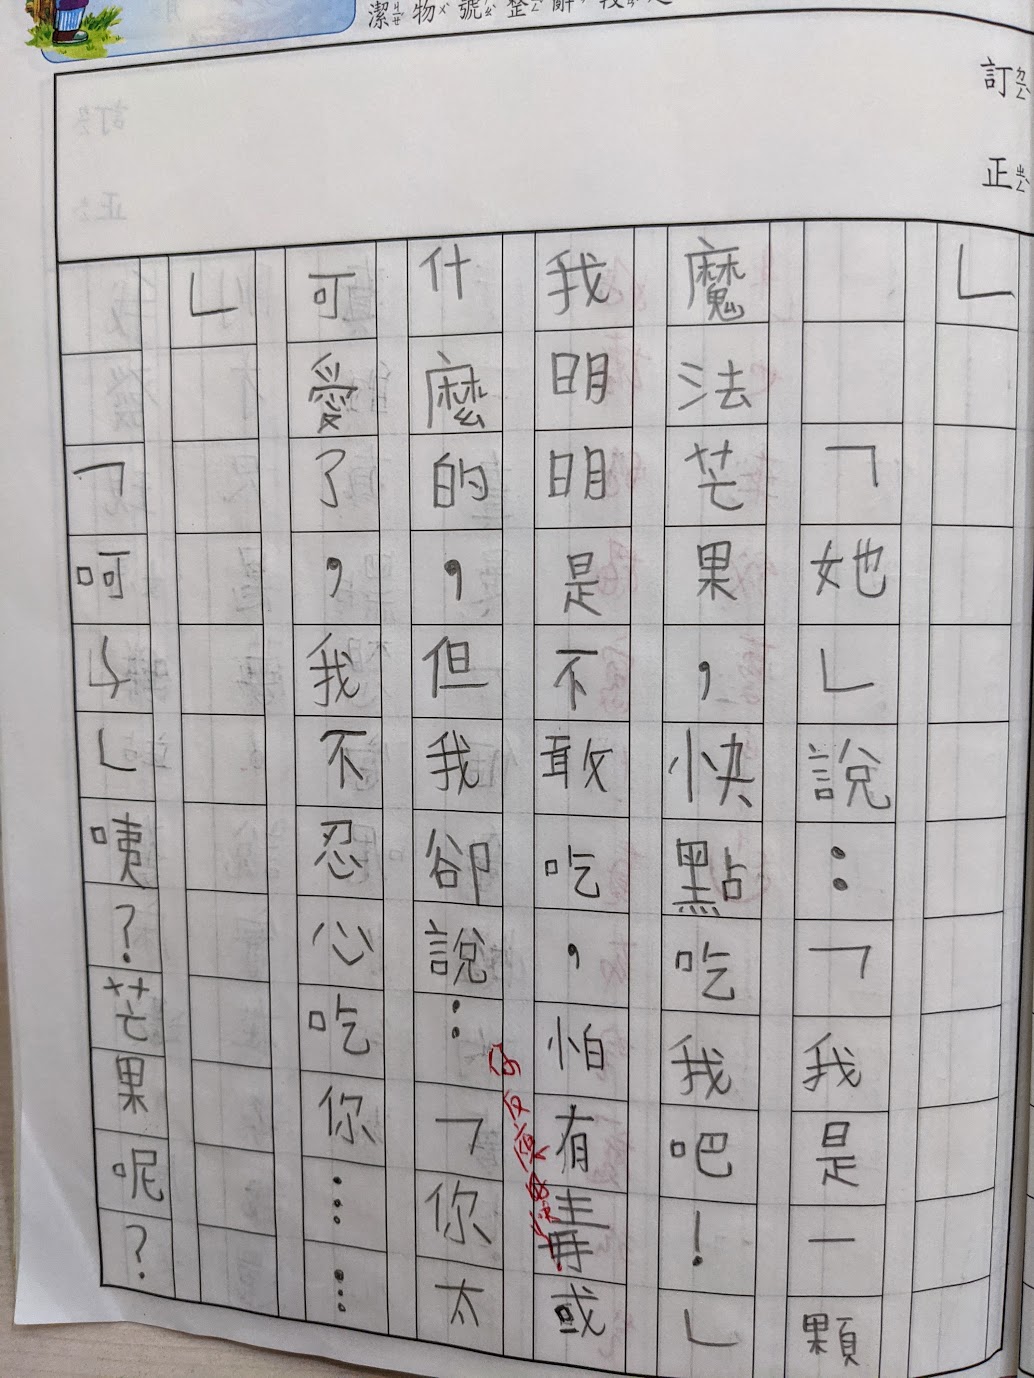 潔物號整
訂正
」
「她」說：「我是一顆
魔法芒果，快點吃我吧！」
我明明是不敢吃，怕有毒或
什麼的，但我卻說：「你太
可愛了，我不忍心吃你……
」
「呵ㄣ」咦？芒果呢？